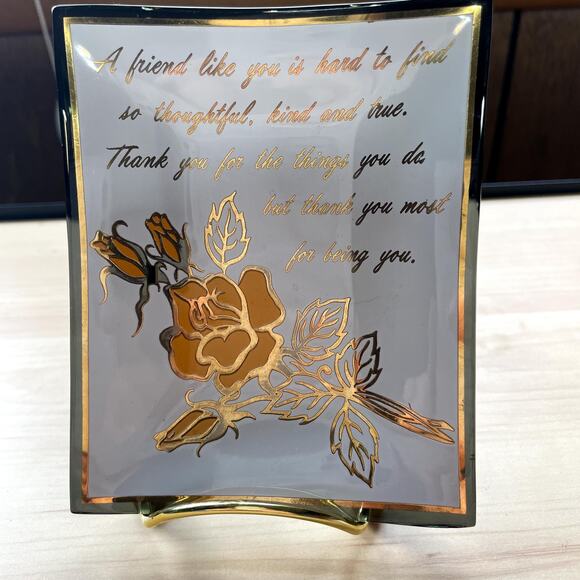 A friend like you is hard to find
so thoughtful, kind and true.
Thank you for the things you do,
but thank you most
for being you.